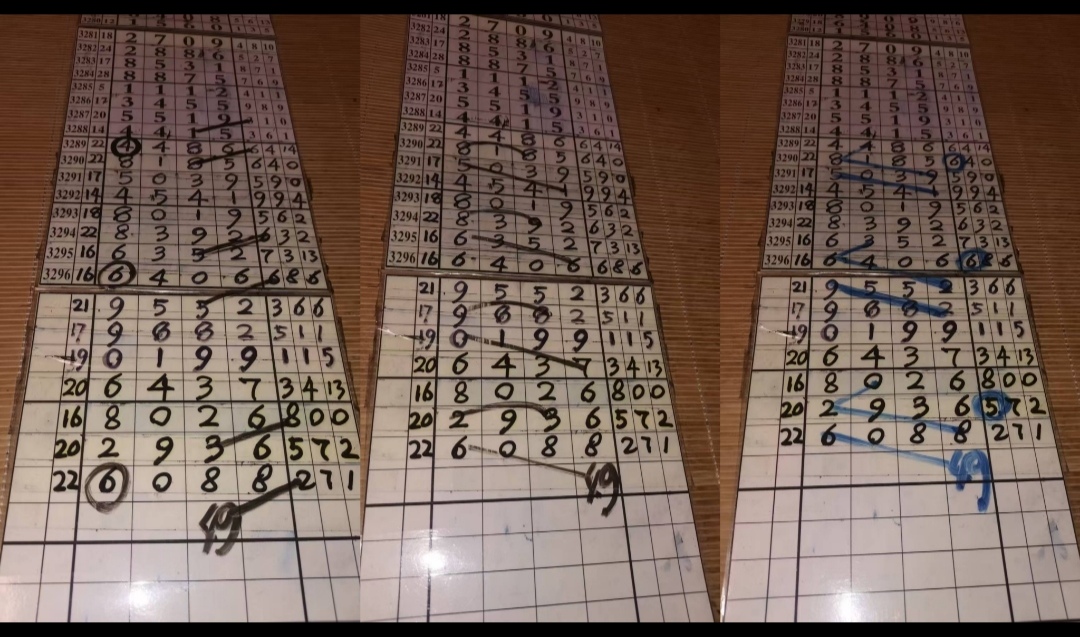 3281 18 2 7 0 9 4 8 10
3282 24 2 8 8 6
3283 17 8 5 3 1 8 7 1
3284 28 8 8 7 5
3285 5 1 1 1 2
3286 17 3 4 5 5
3287 20 5 5 1 9
3288 14 4 4 1 5 3 6 1
3289 22 4 4 8 6 6 4 14
3290 22 8 1 8 5 6 4 0
3291 17 5 0 3 9 5 9 0
3292 14 4 5 4 1 9 9 4
3293 18 8 0 1 9 5 6 2
3294 22 8 3 9 2 6 3 2
3295 16 6 3 5 2 7 3 13
3296 16 6 4 0 6 6 8 6
21 9 5 5 2 3 6 6
17 9 6 8 2 5 1 1
19 0 1 9 9 1 1 5
20 6 4 3 7 3 4 13
16 8 0 2 6 8 0 0
20 2 9 3 6 5 7 2
22 6 0 8 8 2 7 1
49
3281 18 2 7 0 9 4 8 10
3282 24 2 8 8 6
3283 17 8 5 3 1 8 7 1
3284 28 8 8 7 5
3285 5 1 1 1 2
3286 17 3 4 5 5
3287 20 5 5 1 9
3288 14 4 4 1 5
3289 22 4 4 8 6 6 4 14
3290 22 8 1 8 5 6 4 0
3291 17 5 0 3 9 5 9 0
3292 14 4 5 4 1 9 9 4
3293 18 8 0 1 9 5 6 2
3294 22 8 3 9 2 6 3 2
3295 16 6 3 5 2 7 3 13
3296 16 6 4 0 6 6 8 6
21 9 5 5 2 3 6 6
17 9 6 8 2 5 1 1
19 0 1 9 9 1 1 5
20 6 4 3 7 3 4 13
16 8 0 2 6 8 0 0
20 2 9 3 6 5 7 2
22 6 0 8 8 2 7 1
49
3281 18 2 7 0 9 4 8 10
3282 24 2 8 8 6
3283 17 8 5 3 1 8 7 1
3284 28 8 8 7 5
3285 5 1 1 1 2
3286 17 3 4 5 5
3287 20 5 5 1 9
3288 14 4 4 1 5
3289 22 4 4 8 6 6 4 14
3290 22 8 1 8 5 6 4 0
3291 17 5 0 3 9 5 9 0
3292 14 4 5 4 1 9 9 4
3293 18 8 0 1 9 5 6 2
3294 22 8 3 9 2 6 3 2
3295 16 6 3 5 2 7 3 13
3296 16 6 4 0 6 6 8 6
21 9 5 5 2 3 6 6
17 9 6 8 2 5 1 1
19 0 1 9 9 1 1 5
20 6 4 3 7 3 4 13
16 8 0 2 6 8 0 0
20 2 9 3 6 5 7 2
22 6 0 8 8 2 7 1
49